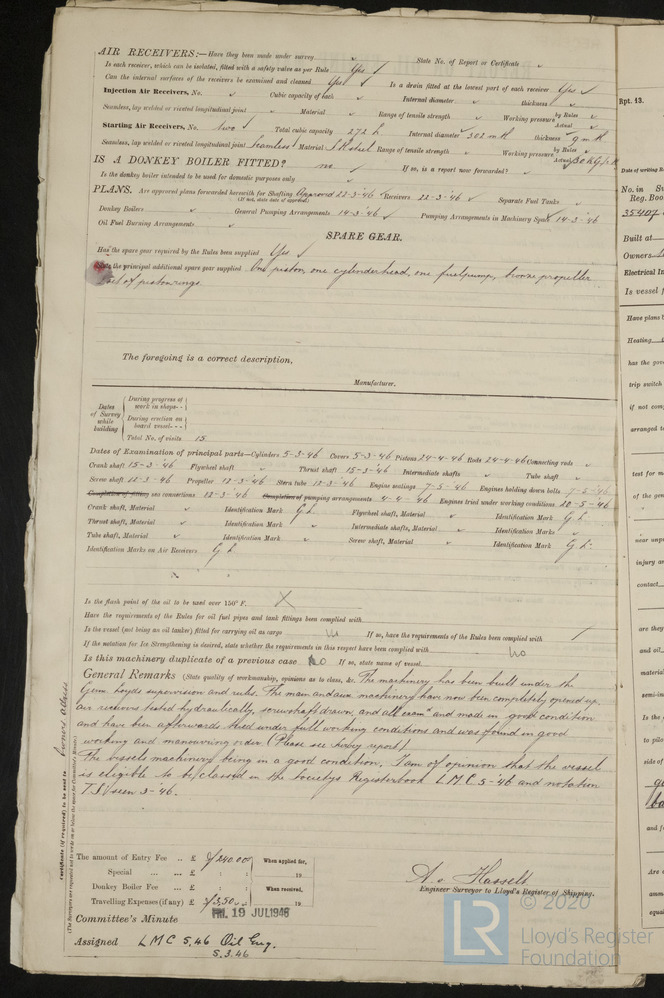 AIR RECEIVERS:—Have they been made under survey ✓ State No. of Report or Certificate ✓
Is each receiver, which can be isolated, fitted with a safety valve as per Rule Yes ✓
Can the internal surfaces of the receivers be examined and cleaned Yes ✓ Is a drain fitted at the lowest part of each receiver Yes ✓
Injection Air Receivers, No. ✓ Cubic capacity of each ✓ Internal diameter ✓ thickness ✓
Seamless, lap welded or riveted longitudinal joint ✓ Material ✓ Range of tensile strength ✓ Working pressure by Rules ✓ Actual ✓
Starting Air Receivers, No. two ✓ Total cubic capacity 272 Internal diameter 302 thickness 9
Seamless, lap welded or riveted longitudinal joint Seamless Material Range of tensile strength ✓ Working pressure by Rules ✓ Actual 30
IS A DONKEY BOILER FITTED? no ✓ If so, is a report now forwarded? ✓
Is the donkey boiler intended to be used for domestic purposes only ✓
PLANS. Are approved plans forwarded herewith for Shafting Approved 22-3-46 Receivers 22-3-46 ✓ Separate Fuel Tanks ✓
(If not, state date of approval)
Donkey Boilers ✓ General Pumping Arrangements 14-3-46 ✓ Pumping Arrangements in Machinery Space 14-3-46
Oil Fuel Burning Arrangements ✓
SPARE GEAR.
Has the spare gear required by the Rules been supplied Yes ✓
State the principal additional spare gear supplied One piston, one cylinderhead, one fuelpump, bronze propeller
1 set of pistonrings
The foregoing is a correct description,
Manufacturer.
Dates of Survey while building
During progress of work in shops - -
During erection on board vessel - - -
Total No. of visits 15
Dates of Examination of principal parts—Cylinders 5-3-46 Covers 5-3-46 Pistons 24-4-46 Rods 24-4-46 Connecting rods ✓
Crank shaft 15-3-46 Flywheel shaft ✓ Thrust shaft 15-3-46 Intermediate shafts ✓ Tube shaft ✓
Screw shaft 12-3-46 Propeller 12-3-46 Stern tube 12-3-46 Engine seatings 7-5-46 Engines holding down bolts 7-5-46
Completion of fitting sea connections 12-3-46 Completion of pumping arrangements 4-4-46 Engines tried under working conditions 20-5-46
Crank shaft, Material ✓ Identification Mark G L Flywheel shaft, Material ✓ Identification Mark G L
Thrust shaft, Material ✓ Identification Mark ✓ Intermediate shafts, Material ✓ Identification Marks ✓
Tube shaft, Material ✓ Identification Mark ✓ Screw shaft, Material ✓ Identification Mark G L
Identification Marks on Air Receivers G L
Is the flash point of the oil to be used over 150° F. X
Have the requirements of the Rules for oil fuel pipes and tank fittings been complied with
Is the vessel (not being an oil tanker) fitted for carrying oil as cargo If so, have the requirements of the Rules been complied with
If the notation for Ice Strengthening is desired, state whether the requirements in this respect have been complied with no
Is this machinery duplicate of a previous case No If so, state name of vessel
General Remarks (State quality of workmanship, opinions as to class, &c. The machinery has been built under the
Germ. Lloyds supervision and rules. The main and aux. machinery have now been completely opened up,
air receivers tested hydraulically, screwshaft drawn, and all exam^d and made in good condition
and have been afterwards tried under full working conditions and was found in good
working and manouvring order. (Please see report)
The vessels machinery being in a good condition, I am of opinion that the vessel
is eligible to be classed in the Societys Registerbook LMC 5-'46 and notation
T.S. seen 3-46.
Certificate (if required) to be sent to
owners
(The Surveyors are requested not to write on or below the space for Committee's Minute.)
The amount of Entry Fee .. £ f 240.00 When applied for,
Special ... ... £ : : 19
Donkey Boiler Fee ... £ : : When received,
Travelling Expenses (if any) £ f 3,50 19
A. v. Hasselt
Engineer Surveyor to Lloyd's Register of Shipping.
Committee's Minute FRI. 19 JUL 1946
Assigned LMC 5.46 Oil Eng.
S.3.46
Rpt. 13.
Date of writing R
No. in
Reg. Boo
35407
Built at
Owners
Electrical In
Is vessel f
Have plans b
Heating
has the gov
trip switch
if not com
arranged t
test for m
of the gen
near unp
injury a
contact
are they
and oil
material
semi-in
Is the
to pilo
side of
and f
Are
amm
equa
© 2020
LR
Lloyd's Register
Foundation